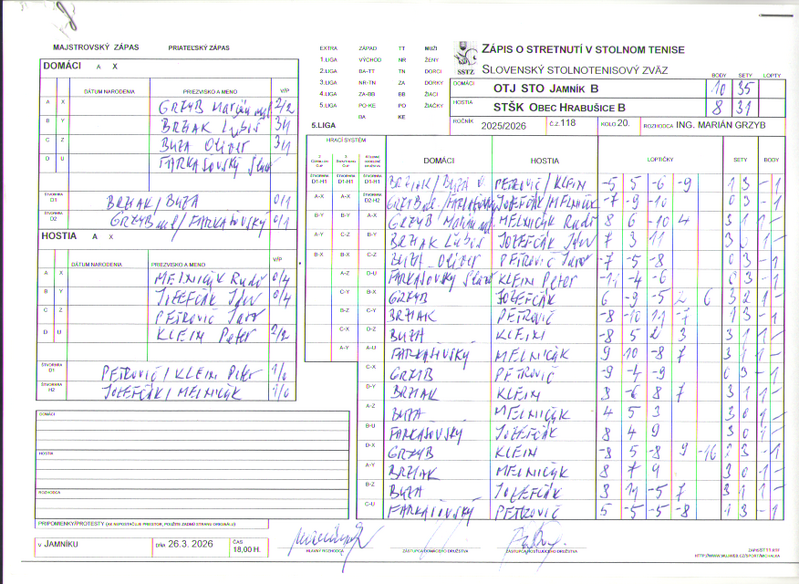 MAJSTROVSKÝ ZÁPAS PRIATEĽSKÝ ZÁPAS
DOMÁCI A X
DÁTUM NARODENIA PRIEZVISKO A MENO V/P
A X GRZYB Marián ml 2/2
B Y BRŽIAK Ľubiš 3/1
C Z BUZA Oliver 3/1
D U FARKAŠOVSKÝ
ŠTVORHRA D1 BRŽIAK / BUZA 0/1
ŠTVORHRA D2 GRZYB ml / FARKAŠOVSKÝ 0/1
HOSTIA A X
DÁTUM NARODENIA PRIEZVISKO A MENO V/P
A X MELNIČÁK Rudi 0/4
B Y JOZEFČÁK Ján 0/4
C Z PETROVIČ Jaro
D U KLEIN Peter 2/2
ŠTVORHRA D1 PETROVIČ / KLEIN Peter 1/0
ŠTVORHRA H2 JOZEFČÁK / MELNIČÁK 1/0
DOMÁCI
HOSTIA
ROZHODCA
V JAMNÍKU DŇA 26.3. 2026 ČAS 18,00 H.
EXTRA ZÁPAD TT MUŽI
1.LIGA VÝCHOD NR ŽENY
2.LIGA BA-TT TN DORCI
3.LIGA NR-TN ZA DORKY
4.LIGA ZA-BB BB ŽIACI
5.LIGA PO-KE PO ŽIAČKY
BA KE
5.LIGA
SSTZ
ZÁPIS O STRETNUTÍ V STOLNOM TENISE
SLOVENSKÝ STOLNOTENISOVÝ ZVÄZ
BODY SETY LOPTY
DOMÁCI OTJ STO JAMNÍK B 10 35
HOSTIA STŠK OBEC HRABUŠICE B 8 31
ROČNÍK 2025/2026 Č.Z. 118 KOLO 20. ROZHODCA ING. MARIÁN GRZYB
HRACÍ SYSTÉM
DOMÁCI HOSTIA LOPTIČKY SETY BODY
D1-H1 D1-H1 D1-H1 BRŽIAK / BUZA PETROVIČ / KLEIN -5 5 -6 -9 1 3 - 1
A-X A-X D2-H2 GRZYB ml / FARKAŠOVSKÝ JOZEFČÁK / MELNIČÁK -7 -9 -10 0 3 - 1
B-Y B-Y A-X GRZYB Marián ml MELNIČÁK Rudi 8 6 -10 4 3 1 1 -
A-Y C-Z B-Y BRŽIAK Ľubiš JOZEFČÁK Ján 7 3 11 3 0 1 -
B-X A-X C-Z BUZA Oliver PETROVIČ Jaro -7 -5 -8 0 3 - 1
A-Z D-U FARKAŠOVSKÝ KLEIN Peter -11 -4 -6 0 3 - 1
C-Y B-X GRZYB JOZEFČÁK 6 -9 -5 2 6 3 2 1 -
B-Z BRŽIAK PETROVIČ -8 -10 11 -7 1 3 - 1
C-X D-Z BUZA KLEIN -8 5 2 3 3 1 1 -
A-Y A-U FARKAŠOVSKÝ MELNIČÁK 9 10 -8 7 3 1 1 -
C-X GRZYB PETROVIČ -9 -4 -9 0 3 - 1
D-Y BRŽIAK KLEIN 3 -6 8 7 3 1 1 -
A-Z BUZA MELNIČÁK 4 5 3 3 0 1 -
B-U FARKAŠOVSKÝ JOZEFČÁK 8 4 9 3 0 1 -
D-X GRZYB KLEIN -8 5 -8 9 -16 2 3 - 1
A-Y BRŽIAK MELNIČÁK 8 7 9 3 0 1 -
B-Z BUZA JOZEFČÁK 3 11 -5 7 3 1 1 -
C-U FARKAŠOVSKÝ PETROVIČ 5 -5 -5 -8 1 3 - 1
HLAVNÝ ROZHODCA ZÁSTUPCA DOMÁCEHO DRUŽSTVA ZÁSTUPCA HOSŤUJÚCEHO DRUŽSTVA